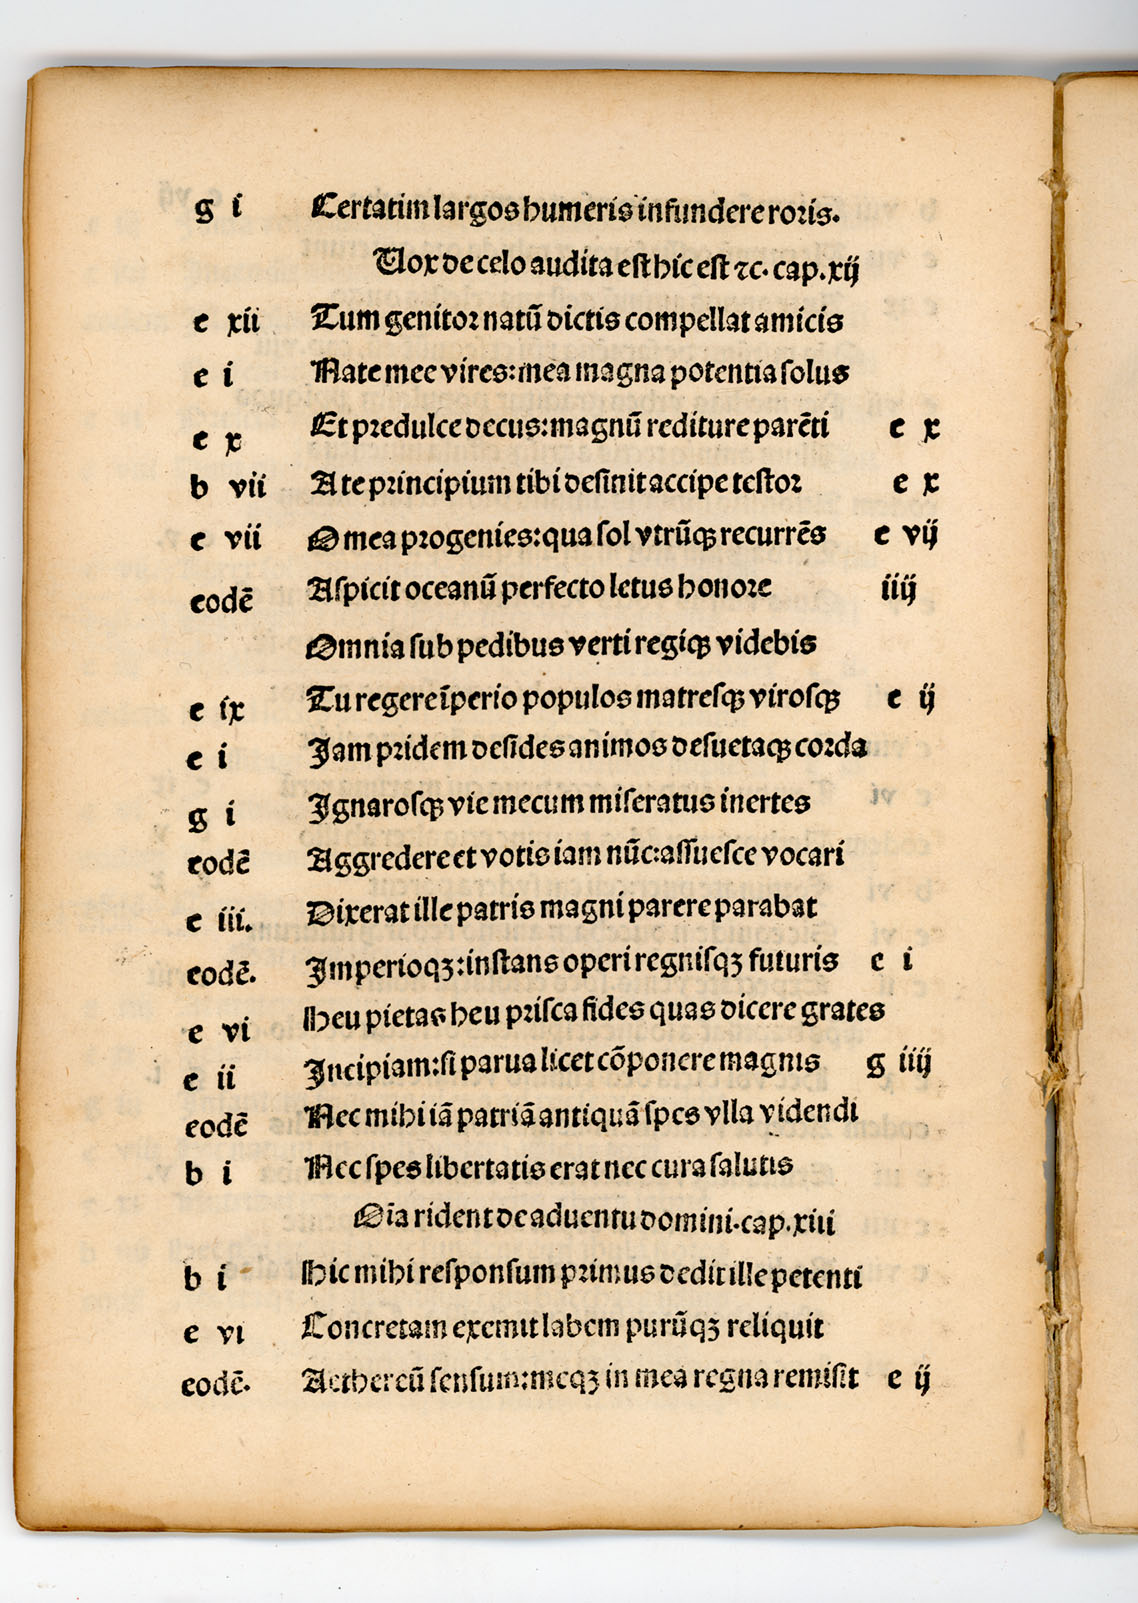 g i Certatim largos humeris infundere roris.
Uox de celo audita est hic est ⁊c. cap. xij
e xii Tum genitor natū dictis compellat amicis
e i Nate mee vires: mea magna potentia solus
e x Et predulce decus: magnū rediture parēti e x
b vii A te principium tibi desinit accipe testor e x
e vii O mea progenies: qua sol vtrūqꝫ recurrēs e vij
eodē Aspicit oceanū perfecto letus honore iiij
Omnia sub pedibus verti regiqꝫ videbis
e ix Tu regere īperio populos matresqꝫ virosqꝫ e ij
e i Jam pridem desides animos desuetaqꝫ corda
g i Jgnarosqꝫ vie mecum miseratus inertes
eodē Aggredere et votis iam nūc: assuesce vocari
e iii. Dixerat ille patris magni parere parabat
eodē. Jmperioqꝫ: instans operi regnisqꝫ futuris e i
e vi Heu pietas heu prisca fides quas dicere grates
e ii Jncipiam: si parua licet cōponere magnis g iiij
eodē Nec mihi iā patriā antiquā spes vlla videndi
b i Nec spes libertatis erat nec cura salutis
Oīa rident de aduentu domini. cap. xiii
b i Hic mihi responsum primus dedit ille petenti
e vi Concretam exemit labem purūqꝫ reliquit
eodē. Aethereū sensum: meqꝫ in mea regna remisit e ij